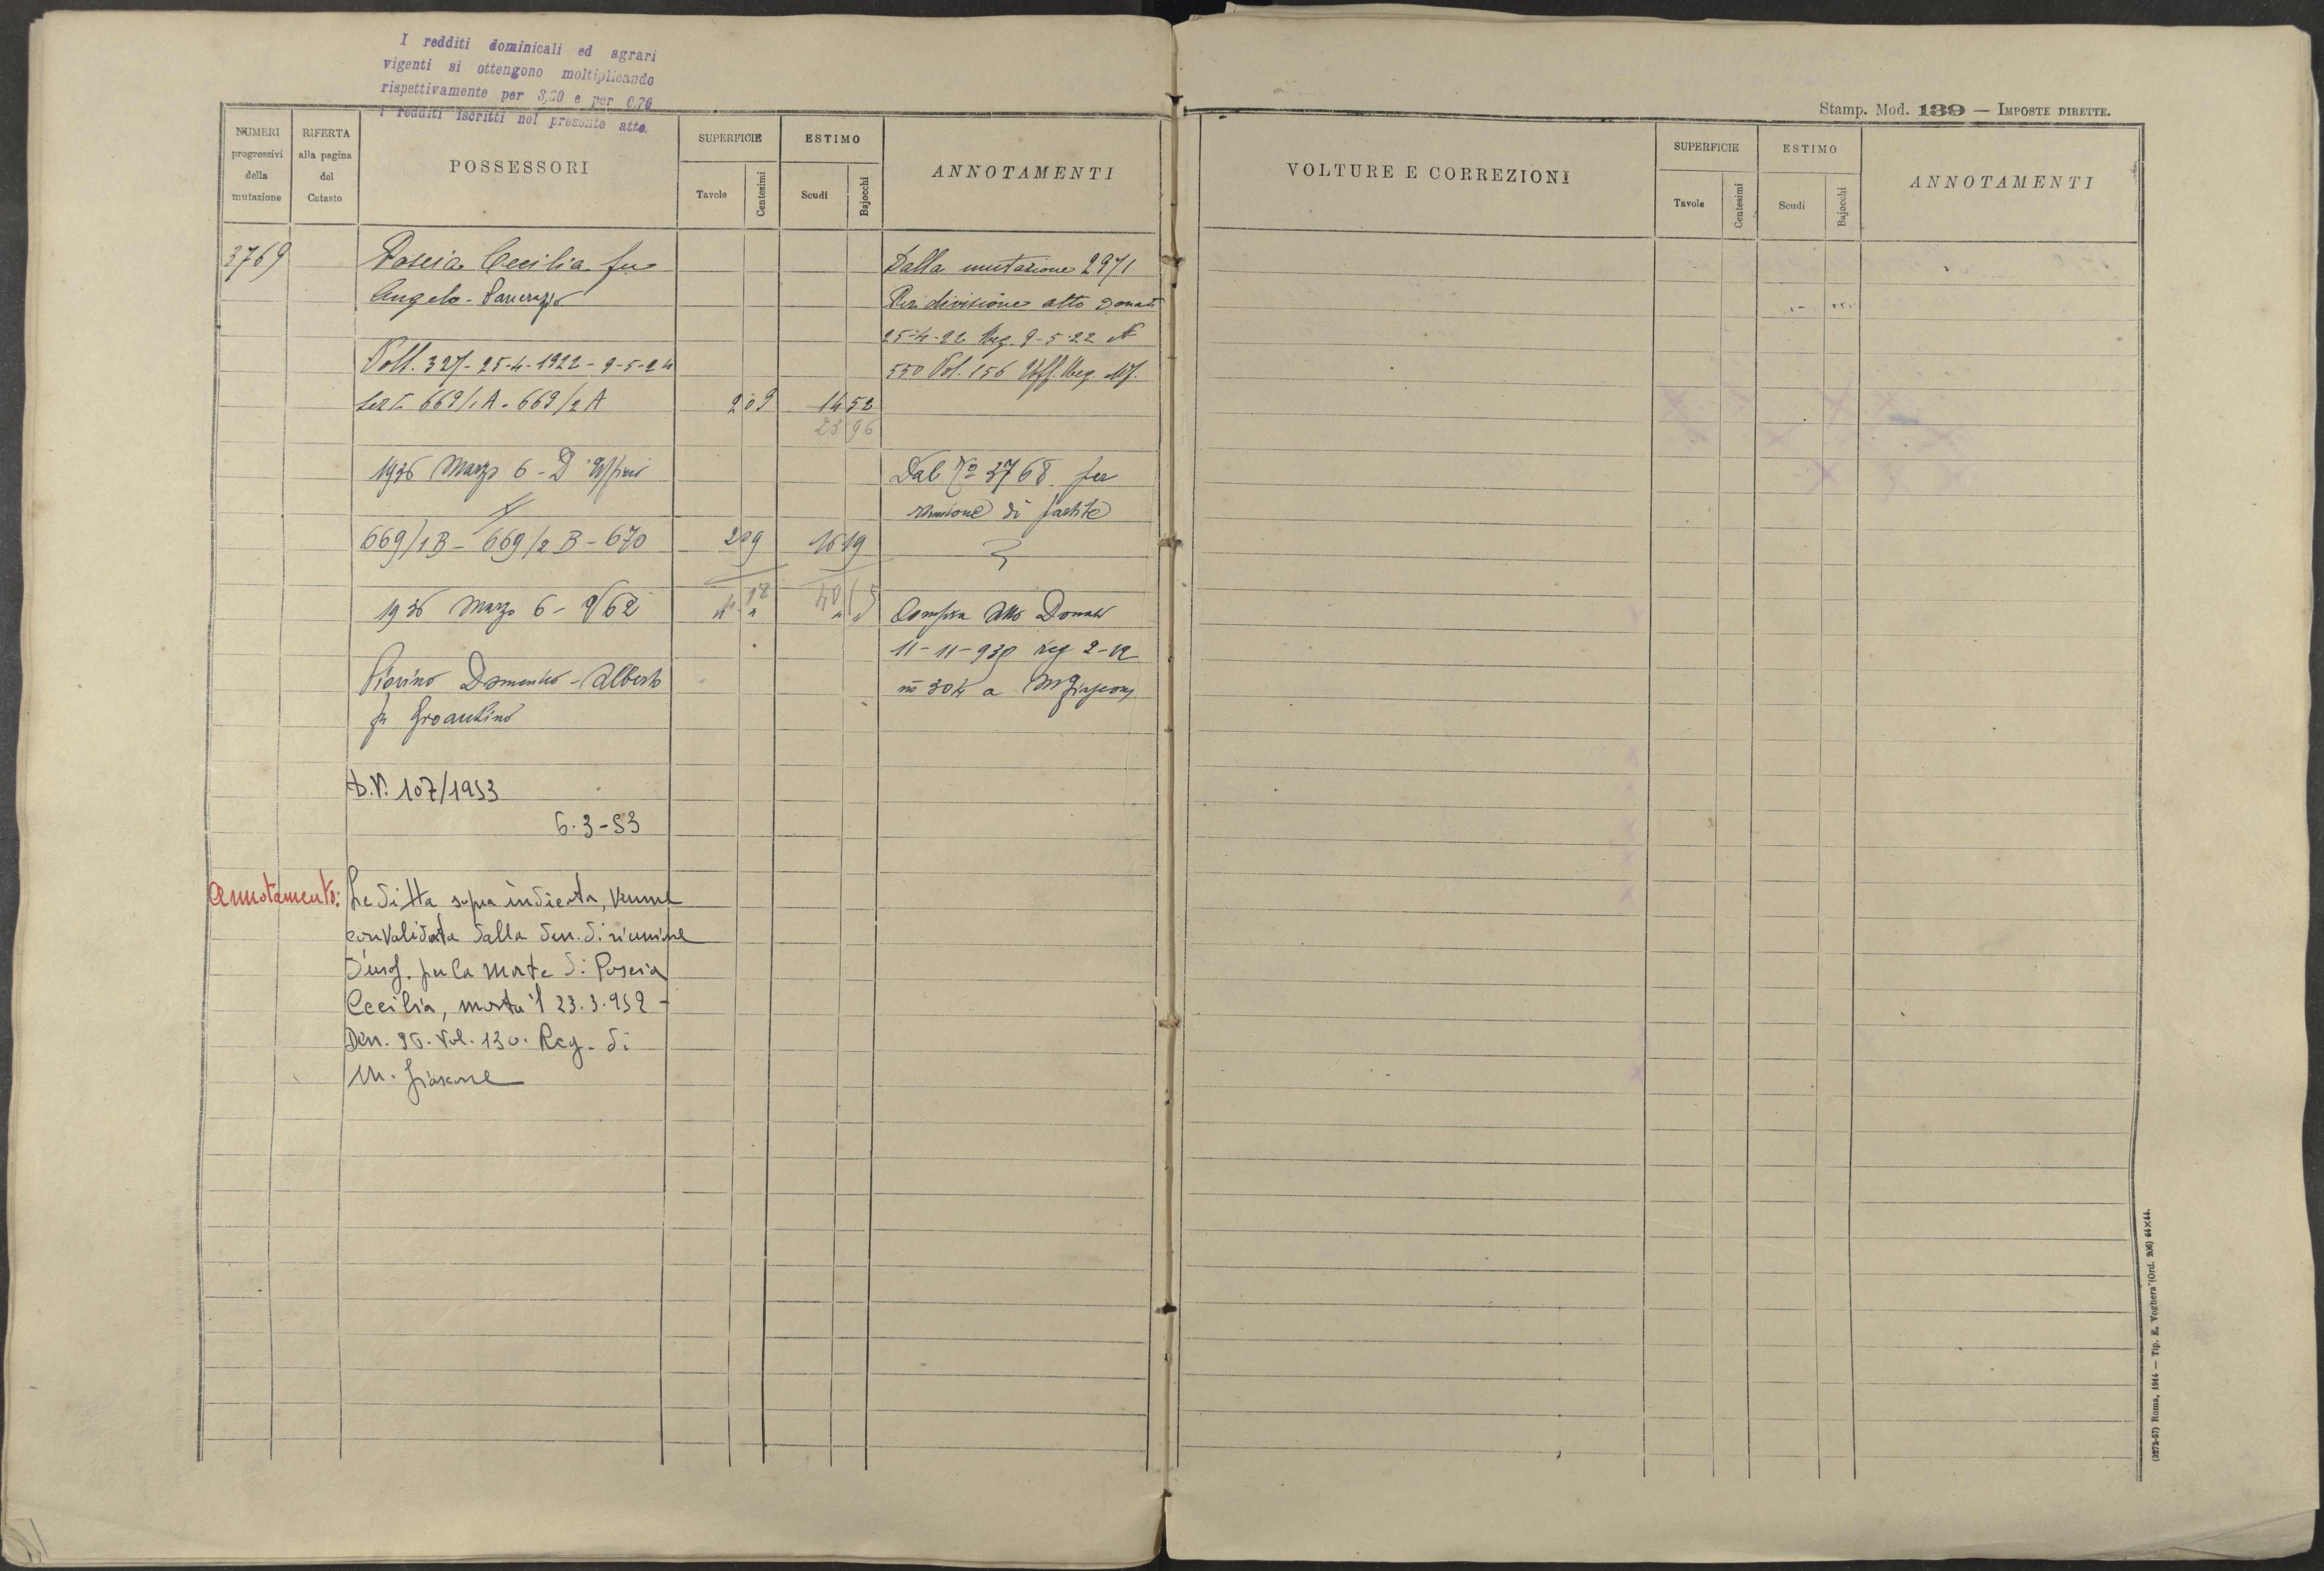 I redditi dominicali ed agrari
vigenti si ottengono moltiplicando
rispettivamente per 3,20 e per 0,70
i redditi iscritti nel presente atto.
Stamp. Mod. 139 — IMPOSTE DIRETTE.
NUMERI progressivi della mutazione
RIFERTA alla pagina del Catasto
POSSESSORI
SUPERFICIE
Tavole
Centesimi
ESTIMO
Scudi
Bajocchi
ANNOTAMENTI
3769
Poscia Cecilia fu
Angelo
Dalla mutazione 2971
Per divisione atto Donati
25-4-22 Reg. 9-5-22 N
Volt. 327-25-4-1922-9-5-24
550 Vol. 156 Uff. Reg. Mf.
Sez I 669/1A-669/2A 2 09 14 52
23 96
1936 Marzo 6 - D'Ufficio
Dal No 3768 per
riunione di partite
669/1B - 669/2B - 670 2 09 16 19
4 18 40 15
1936 Marzo 6 - 9/62
" " " "
Compra Atto Donati
11-11-930 reg 2-12
Piovino Domenico - Alberto
no 304 a
fu
D.V. 107/1953
6.3-53
Annotamento: La Ditta sopra indicata, venne
convalidata dalla den. di riunione
d'usuf. per la morte di Poscia
Cecilia, morta il 23.3.952 -
Den. 96. Vol. 130. Reg. di
M. fiascone
VOLTURE E CORREZIONI
SUPERFICIE
Tavole
Centesimi
ESTIMO
Scudi
Bajocchi
ANNOTAMENTI
(3272-57) Roma, 1914 — Tip. E. Voghera (Ord. 206) 64×44.